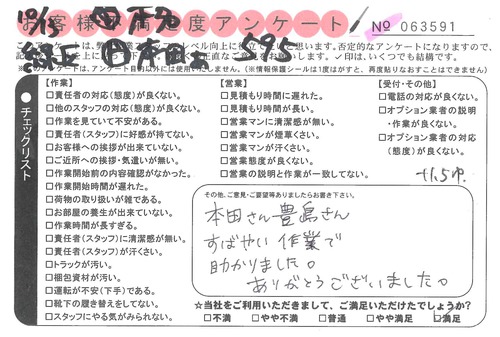 10/15
お客様満足度アンケート
No 063591
このアンケートは、弊
記 上に 下 直なご意見をお願いします。✓印は、いくつでも結構です。
※このアンケートは、アンケート目的以外には使用いたしません。(情報保護シールは1度はがすと、再度貼りなおすことはできません)
チェックリスト
【作業】
□責任者の対応(態度)が良くない。
□他のスタッフの対応(態度)が良くない。
□作業を見ていて不安がある。
□責任者(スタッフ)に好感が持てない。
□お客様への挨拶が出来ていない。
□ご近所への挨拶・気遣いが無い。
□作業開始前の内容確認がなかった。
□作業開始時間が遅れた。
□荷物の取り扱いが雑である。
□お部屋の養生が出来ていない。
□作業時間が長すぎる。
□責任者(スタッフ)に清潔感が無い。
□責任者(スタッフ)が汗くさい。
□トラックが汚い。
□梱包資材が汚い。
□運転が不安(下手)である。
□靴下の履き替えをしてない。
□スタッフにやる気がみられない。
【営業】
□見積もり時間に遅れた。
□見積もり時間が長い。
□営業マンに清潔感が無い。
□営業マンが煙草くさい。
□営業マンが汗くさい。
□営業態度が良くない。
□営業の説明と作業が一致してない。
【受付・その他】
□電話の対応が良くない。
□オプション業者の説明
・作業が良くない。
□オプション業者の対応
(態度)が良くない。
その他、ご意見・ご要望等ありましたらお書き下さい。
本田さん豊島さん
すばやい作業で
助かりました。
ありがとうございました。
★当社をご利用いただきまして、ご満足いただけたでしょうか?
□不満 □やや不満 □普通 □やや満足 ☑満足